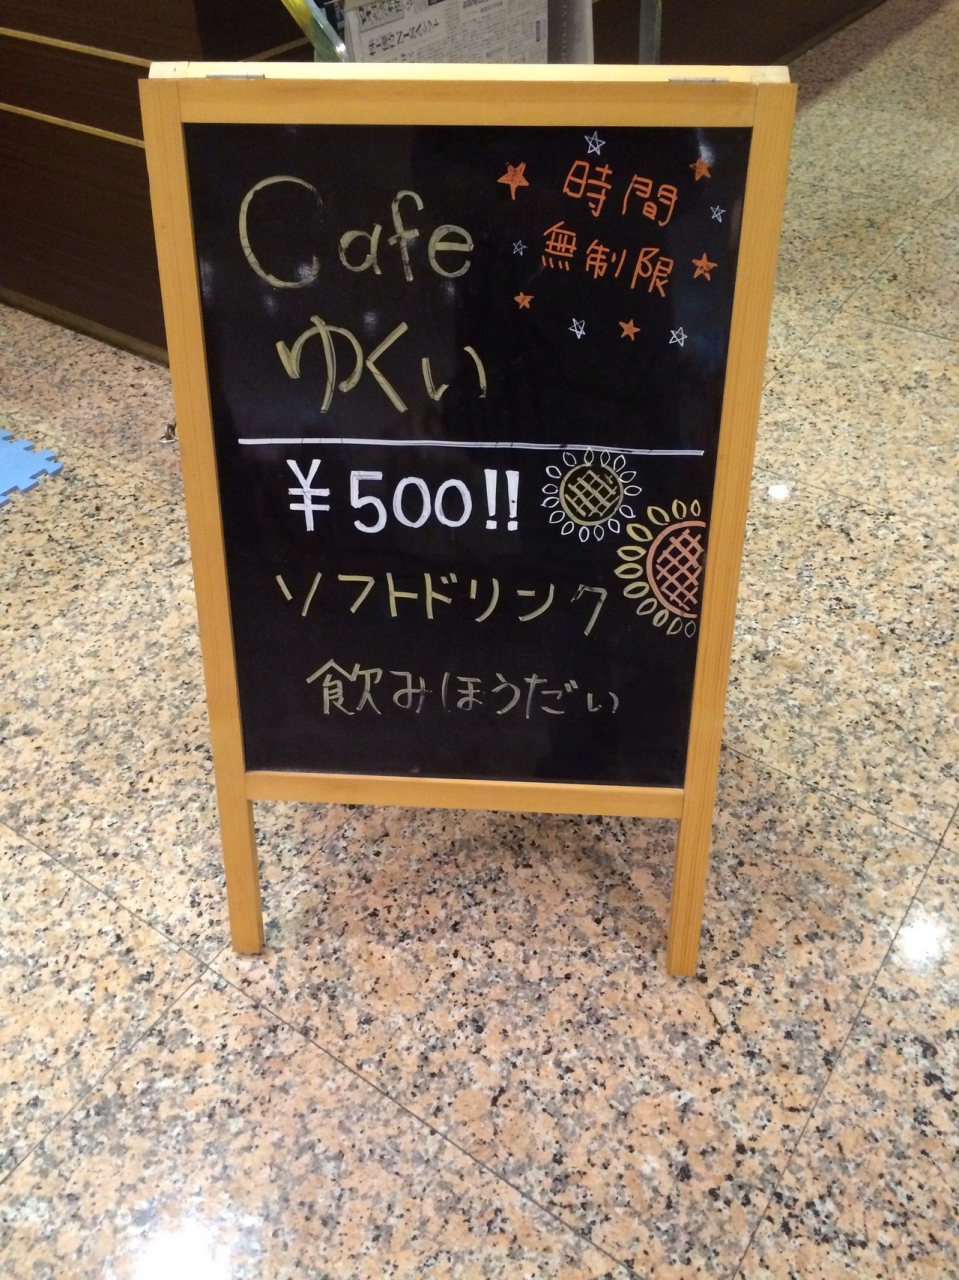 Cafe
ゆくい
時間
無制限
¥500!!
ソフトドリンク
飲みほうだい